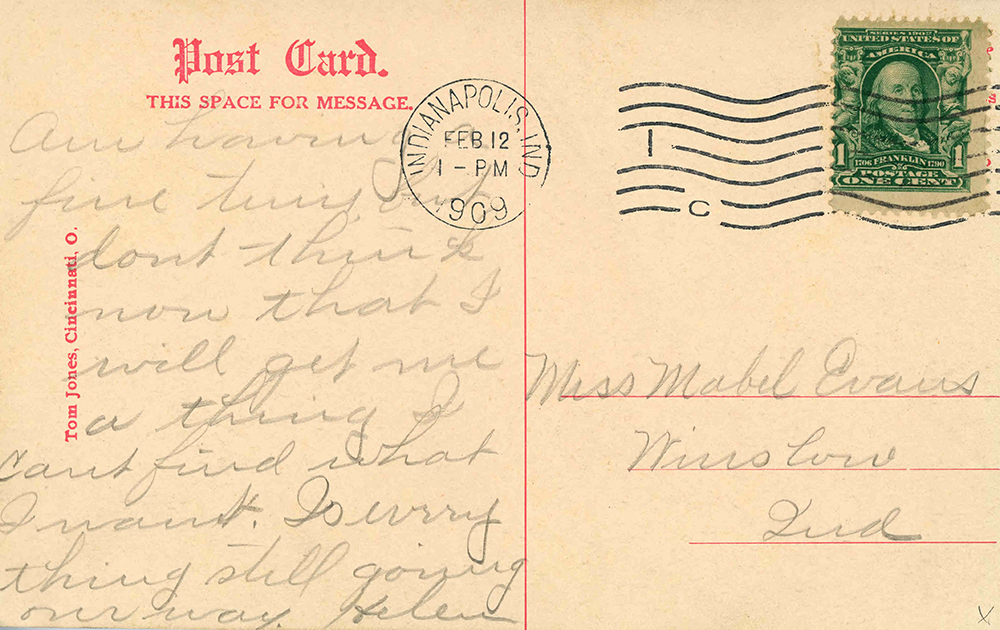 Post Card.
THIS SPACE FOR MESSAGE.
Am having a
fine time but
dont think
now that I
will get me
a thing I
cant find what
I want. Is evrry
thing still going
our way. Helen
Tom Jones, Cincinnati, O.
INDIANAPOLIS, IND
FEB 12
1 - PM
1909
1
C
SERIES 1902
UNITED STATES OF
AMERICA
1 1706 FRANKLIN 1790 1
POSTAGE
ONE CENT
Miss Mabel Evans
Winslow
Ind
x